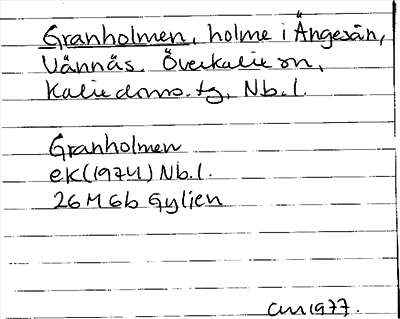 Granholmen, holme i Ängesån,
Vännäs, Överkalix sn,
Kalix doms. tg, Nb.l.
Granholmen
ek(1974) Nb.l.
26M6b Gyljen
1977.